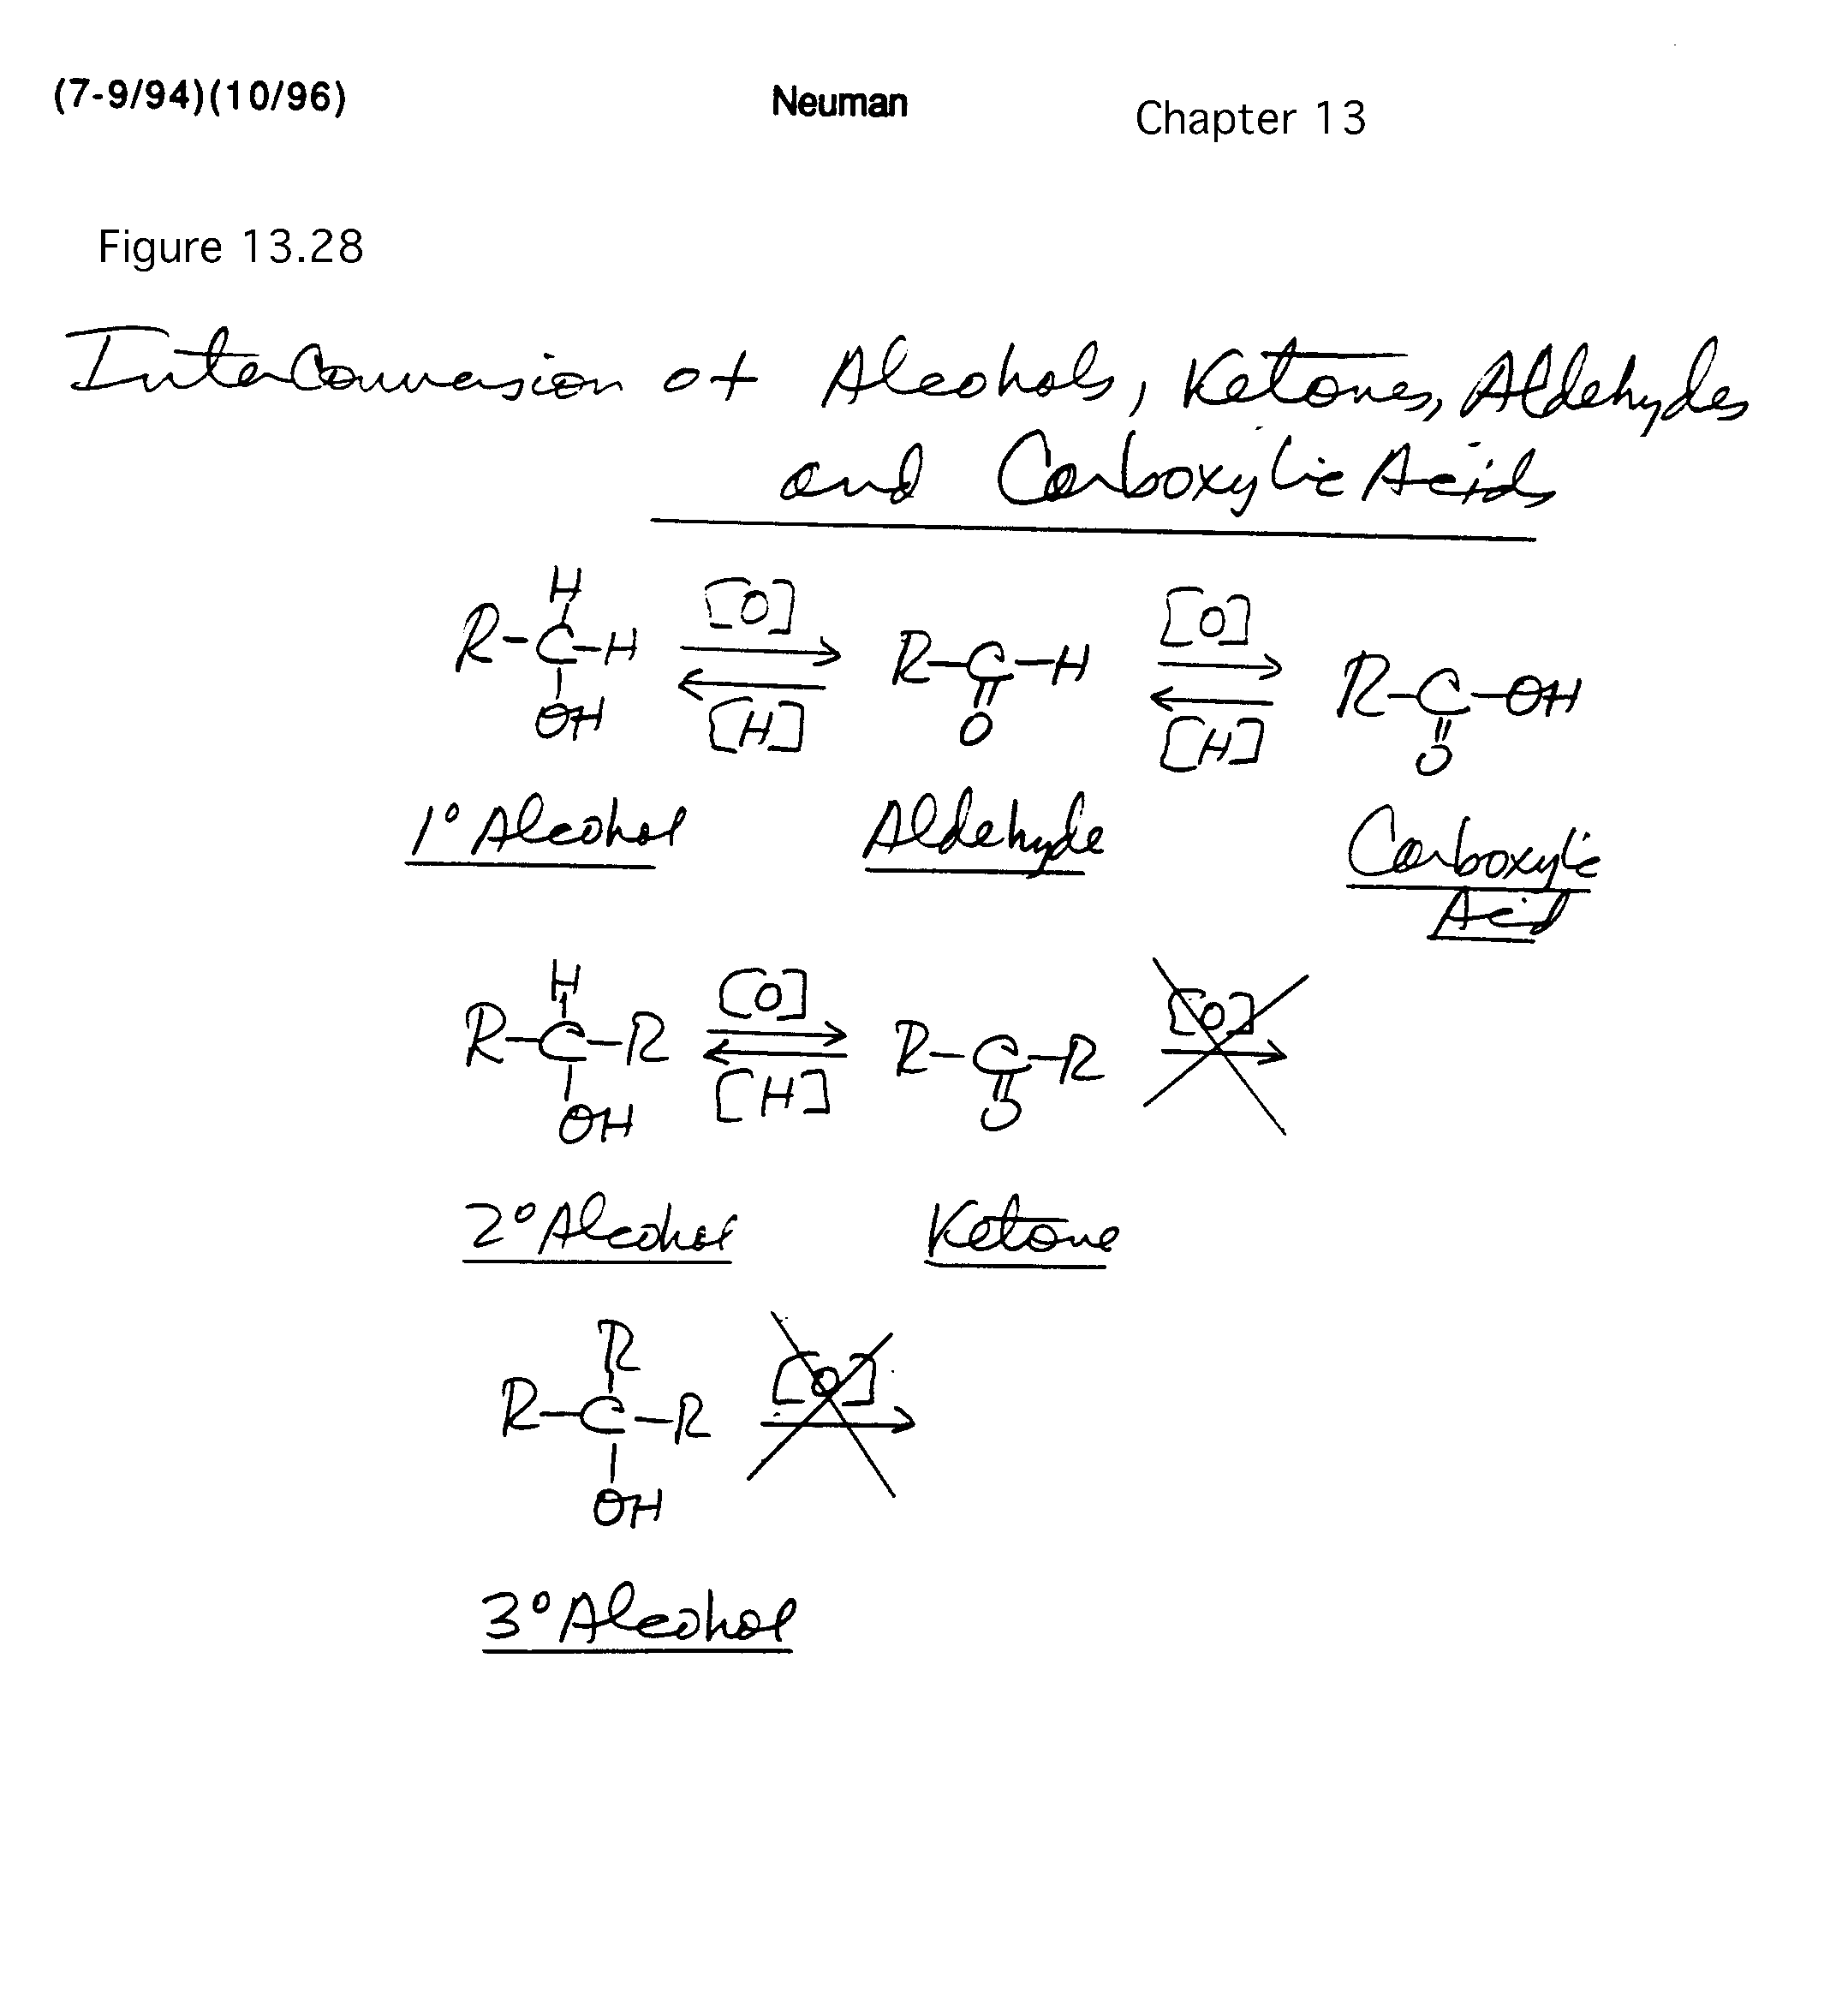 (7-9/94)(10/96) Neuman Chapter 13
Figure 13.28
Interconversion of Alcohols, Ketones, Aldehydes
and Carboxylic Acids
H
[O] [O]
R-C-H R-C-H R-C-OH
OH O O
[H] [H]
1° Alcohol Aldehyde Carboxylic
Acid
H
[O] [O]
R-C-R R-C-R
[H]
OH O
2° Alcohol Ketone
R
[O]
R-C-R
OH
3° Alcohol